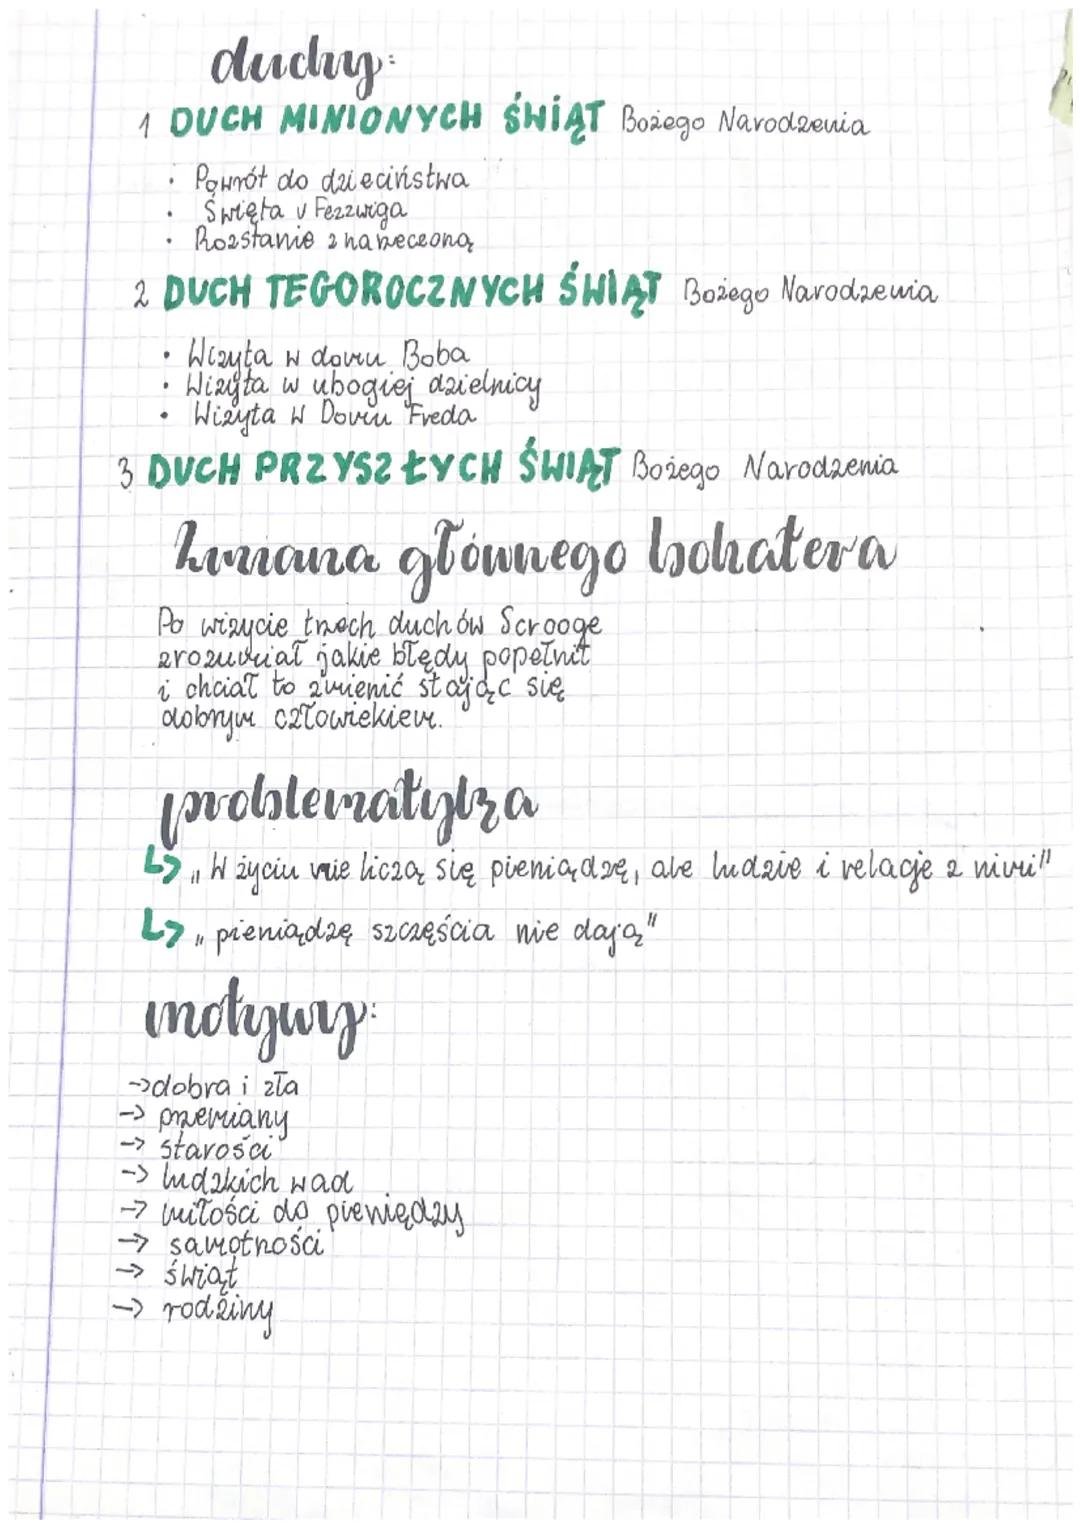 duchy:
1 DUCH MINIONYCH ŚWIĄT Bożego Narodzenia
• Powrót do dzieciństwa
• Święta u Fezzwiga
• Rozstanie z narzeczoną
2 DUCH TEGOROCZNYCH ŚWIĄT Bożego Narodzenia
• Wizyta w domu Boba
• Wizyta w ubogiej dzielnicy
• Wizyta w Domu Freda
3 DUCH PRZYSZŁYCH ŚWIĄT Bożego Narodzenia
Zmiana głównego bohatera
Po wizycie trzech duchów Scrooge
zrozumiał jakie błędy popełnił
i chciał to zmienić stając się
dobrym człowiekiem.
problematyka
↳ „W życiu nie liczą się pieniądzę, ale ludzie i relacje z nimi"
↳ „pieniądzę szczęścia nie dają"
motywy:
→ dobra i zła
→ przemiany
→ starości
→ ludzkich wad
→ miłości do pieniędzy
→ samotności
→ świąt
→ rodziny